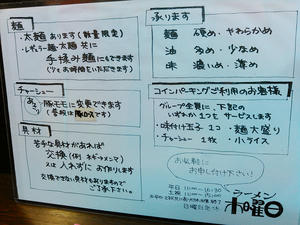 麺
・太麺あります(数量限定)
・レギュラー麺・太麺 共に
手揉み麺にもできます
(少々お時間をいただきます)
チャーシュー
あっさり 豚モモに変更できます
(普段は豚ロースです)
具材
苦手な具材があれば
交換(例 ネギ→メンマ)
又は 入れずに お作りします
交換できない具材もありますので
ご了承下さい。
承ります
麺 硬め・やわらかめ
油 多め・少なめ
味 濃いめ・薄め
コインパーキングご利用のお客様
グループ全員に、下記の
いずれか1つをサービスします
・味付け玉子 1つ ・麺大盛り
・チャーシュー 1枚 ・小ライス
お気軽に
お申し付け下さい!
ラーメン
木曜日
日曜日定休